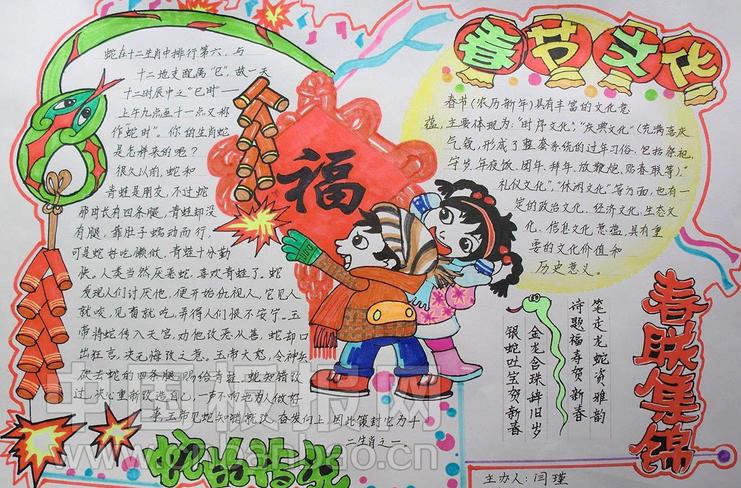 蛇在十二生肖中排行第六，与
十二地支配属“巳”，故一天
十二时辰中之“巳时”——
上午九点至十一点又称
作蛇时”。你的生肖蛇
是怎样来的吧？
很久以前，蛇和
青蛙是朋友，不过蛇
那时长有四条腿，青蛙却没
有腿，靠肚子蠕动而行，
可是蛇好吃懒做，青蛙十分勤
快。人类当然厌恶蛇，喜欢青蛙了。蛇
发现人们讨厌他，便开始仇视人，它见人
就咬，见畜就吃，弄得人们很不安宁。玉
帝将蛇传入天宫，劝他改恶从善，蛇却口
出狂言，决无悔改之意。玉帝大怒，令神兵
砍去蛇的四条腿，赐给青蛙，蛇知错改
过，决心重新改造自己，一声不响地为人做好
事，玉帝见蛇知错就改，奋发向上，因此策封它为十
二生肖之一
蛇的传说
福
春节文化
春节（农历新年）具有丰富的文化意
蕴，主要体现为：“时序文化”，“庆典文化”（充满喜庆
气氛，形成了整套系统的过年习俗，包括祭祀、
守岁、年夜饭、团年、拜年、放鞭炮、贴春联等）。“
礼仪文化”，“休闲文化”等方面，也有一
定的政治文化、经济文化、生态文
化、信息文化意蕴，具有重
要的文化价值和
历史意义。
春联集锦
笔走龙蛇资雅韵
诗题福寿贺新春
金龙含珠辞旧岁
银蛇吐宝贺新春
主办人：闫瑾
中国板报网